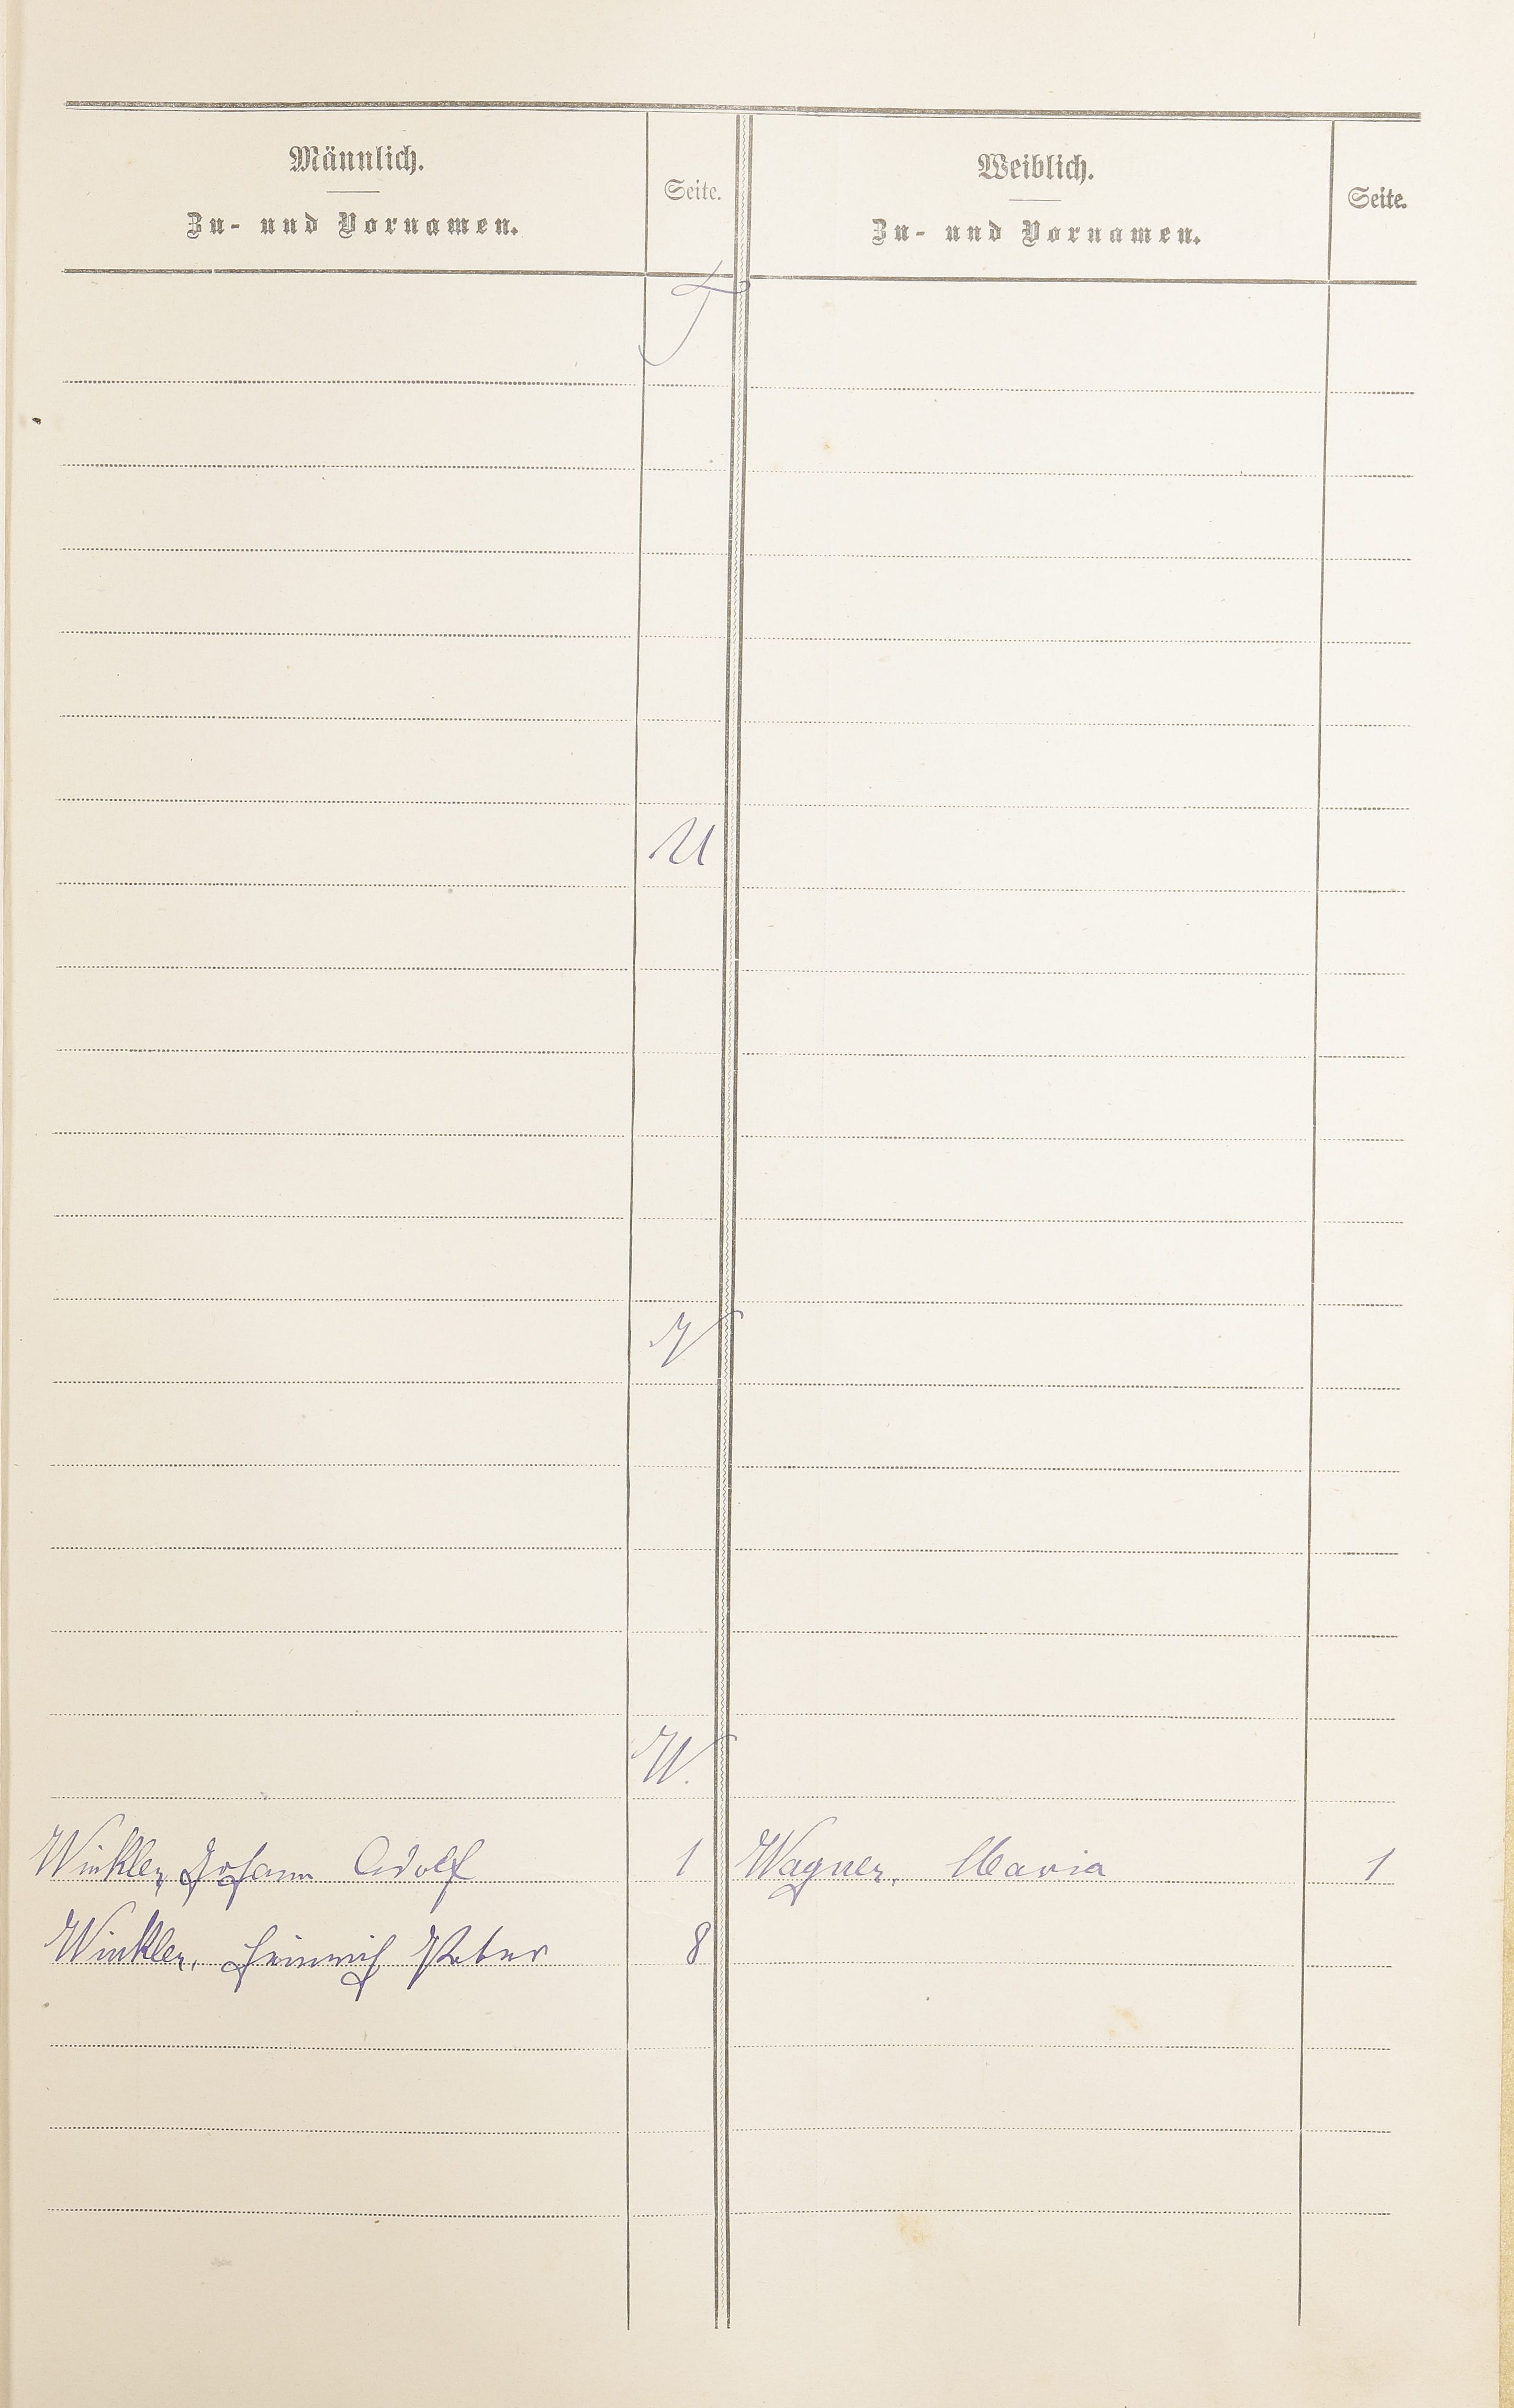 Männlich.
Zu- und Vornamen.
Seite.
Weiblich.
Zu- und Vornamen.
Seite.
T
U
V
W.
Winkler, Johann Adolf 1 Wagner, Maria 1
Winkler, Heinrich Peter 8